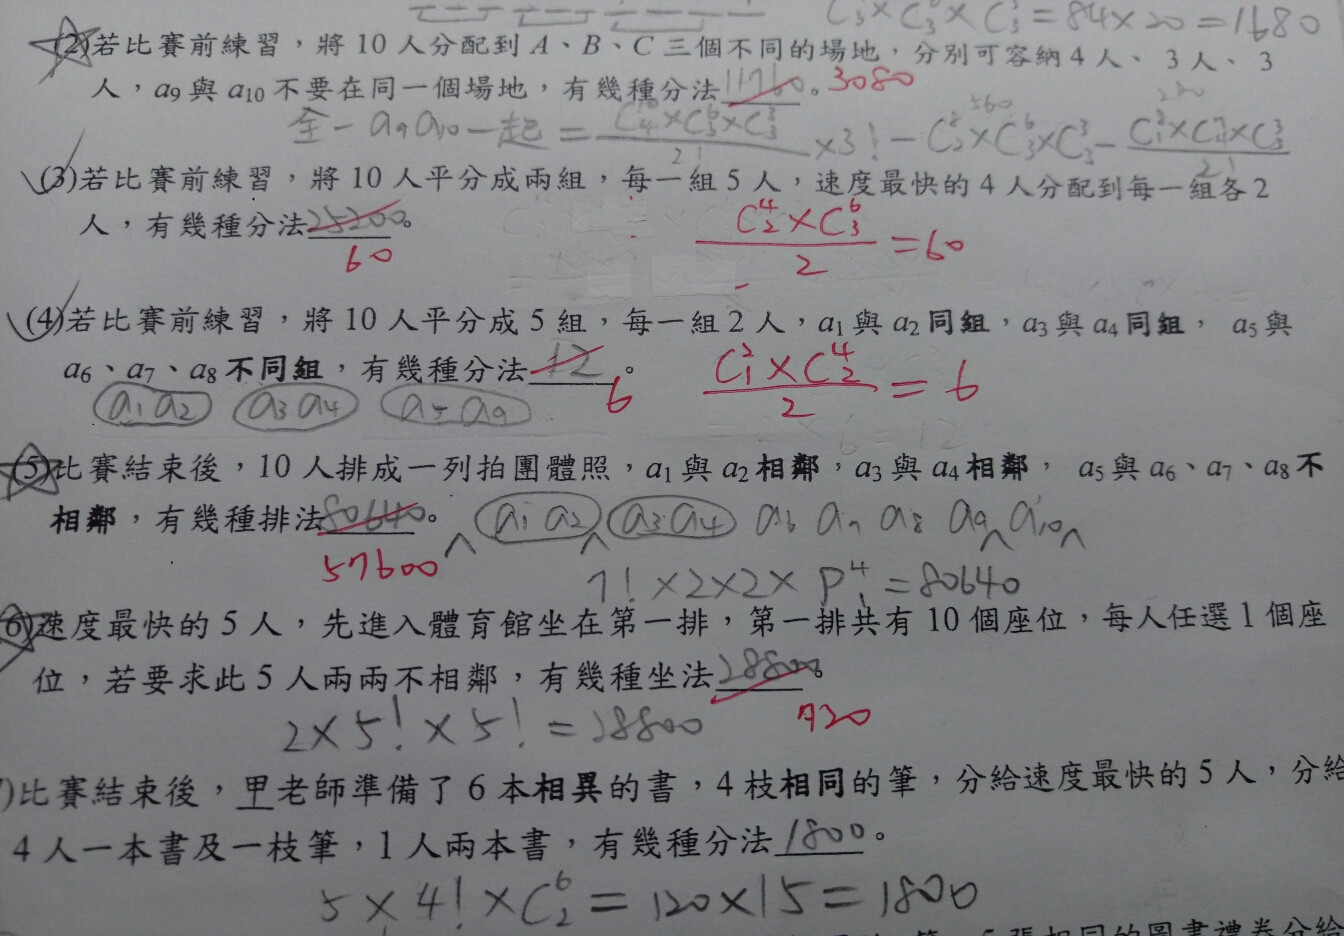 C₃⁹×C₃⁶×C₃³=84×20=1680
(2)若比賽前練習，將 10 人分配到 A、B、C 三個不同的場地，分別可容納 4 人、 3 人、 3
人，a₉ 與 a₁₀ 不要在同一個場地，有幾種分法11760。3080
560
全-a₉a₁₀一起=C₄¹⁰×C₃⁶×C₃³/2!×3!-C₂⁸×C₃⁶×C₃³-C₁⁸×C₄⁷×C₃³/2!
(3)若比賽前練習，將 10 人平分成兩組，每一組 5 人，速度最快的 4 人分配到每一組各 2
人，有幾種分法25200。 C₂⁴×C₃⁶/2=60
60
(4)若比賽前練習，將 10 人平分成 5 組，每一組 2 人，a₁ 與 a₂ 同組，a₃ 與 a₄ 同組， a₅ 與
a₆、a₇、a₈ 不同組，有幾種分法12。 6 C₁²×C₂⁴/2=6
a₁a₂ a₃a₄ a₅a₉
×6=12
(5)比賽結束後，10 人排成一列拍團體照，a₁ 與 a₂ 相鄰，a₃ 與 a₄ 相鄰， a₅ 與 a₆、a₇、a₈ 不
相鄰，有幾種排法80640。 a₁a₂ a₃a₄ a₆ a₇ a₈ a₉ a₁₀
57600 7!×2×2×P₁⁴=80640
(6)速度最快的 5 人，先進入體育館坐在第一排，第一排共有 10 個座位，每人任選 1 個座
位，若要求此 5 人兩兩不相鄰，有幾種坐法28800。
2×5!×5!=28800 720
)比賽結束後，甲老師準備了 6 本相異的書，4 枝相同的筆，分給速度最快的 5 人，分給
4 人一本書及一枝筆，1 人兩本書，有幾種分法1800。
5×4!×C₂⁶=120×15=1800
5 張相同的圖書禮券分給